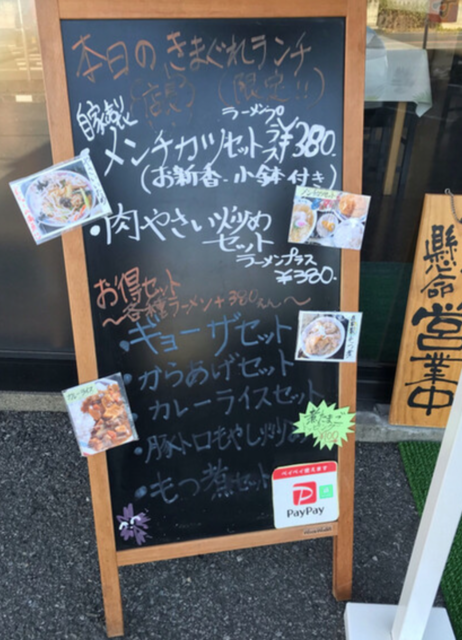 本日のきまぐれランチ
(店売) (限定!!)
自家製
メンチカツセット ラーメンプラス¥380.
(お新香・小鉢付き)
・肉やさい炒め
セット
ラーメンプラス
¥380.
お得セット
〜各種ラーメン+380えん〜
・ギョーザセット
・からあげセット
・カレーライスセット
・豚トロもやし炒め
・もつ煮セット
カレーライス
煮たまご
ペイペイ使えます
PayPay
懸命営業中